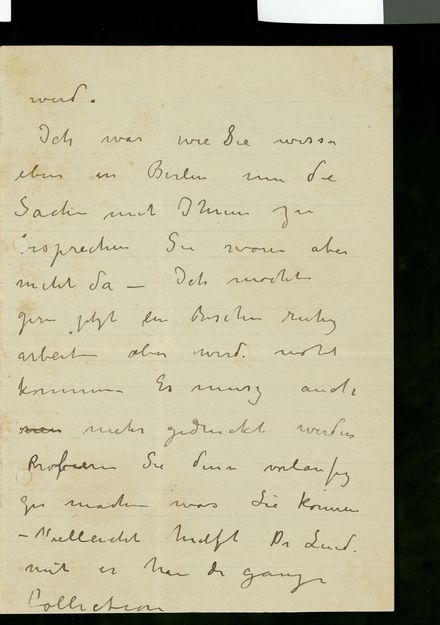 wird.
Ich war wie Sie wissen
eben in Berlin um die
Sachen mit Ihnen zu
besprechen Sie waren aber
nicht da – Ich möchte
gern jetzt ein Bischen ruhig
arbeiten aber wird nicht
kommen – Es musz auch
mehr gedruckt werden
Probieren Sie denn vorläufig
zu machen was Sie können
– Vielleicht hilft Dr
mit er hat die ganze
Collection